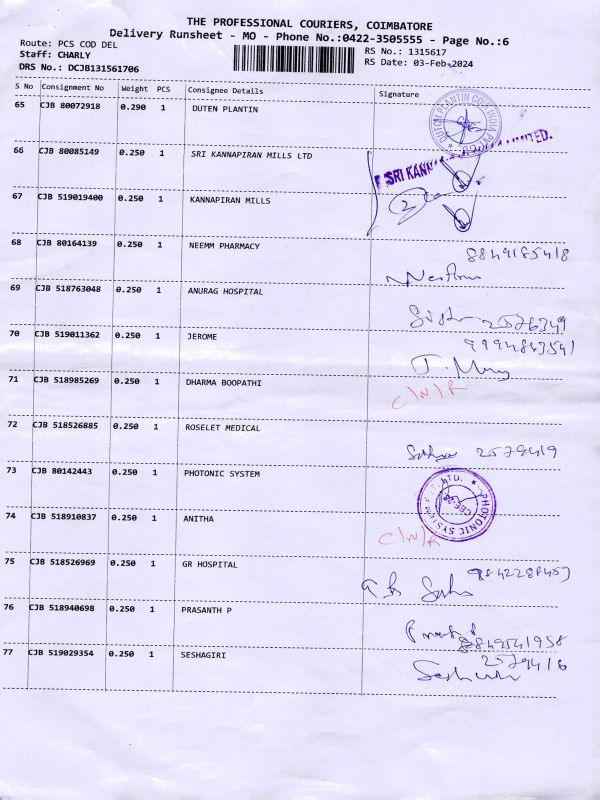 THE PROFESSIONAL COURIERS, COIMBATORE
Delivery Runsheet - MO - Phone No.:0422-3505555 - Page No.:6
Route: PCS COD DEL
RS No.: 1315617
Staff: CHARLY
RS Date: 03-Feb-2024
DRS No.: DCJB131561706
S No Consignment No Weight PCS Consignee Details Signature
65 CJB 80072918 0.290 1 DUTEN PLANTIN
66 CJB 80085149 0.250 1 SRI KANNAPIRAN MILLS LTD
SRI KANN LIMITED.
67 CJB 519019400 0.250 1 KANNAPIRAN MILLS
68 CJB 80164139 0.250 1 NEEMM PHARMACY
8849185418
69 CJB 518763048 0.250 1 ANURAG HOSPITAL
2576349
70 CJB 519011362 0.250 1 JEROME
71 CJB 518985269 0.250 1 DHARMA BOOPATHI
C/N/R
72 CJB 518526885 0.250 1 ROSELET MEDICAL
2579419
73 CJB 80142443 0.250 1 PHOTONIC SYSTEM
PHOTONIC SYSTEM LTD.
74 CJB 518910837 0.250 1 ANITHA
C/N/R
75 CJB 518526969 0.250 1 GR HOSPITAL
76 CJB 518940698 0.250 1 PRASANTH P
77 CJB 519029354 0.250 1 SESHAGIRI
2579416